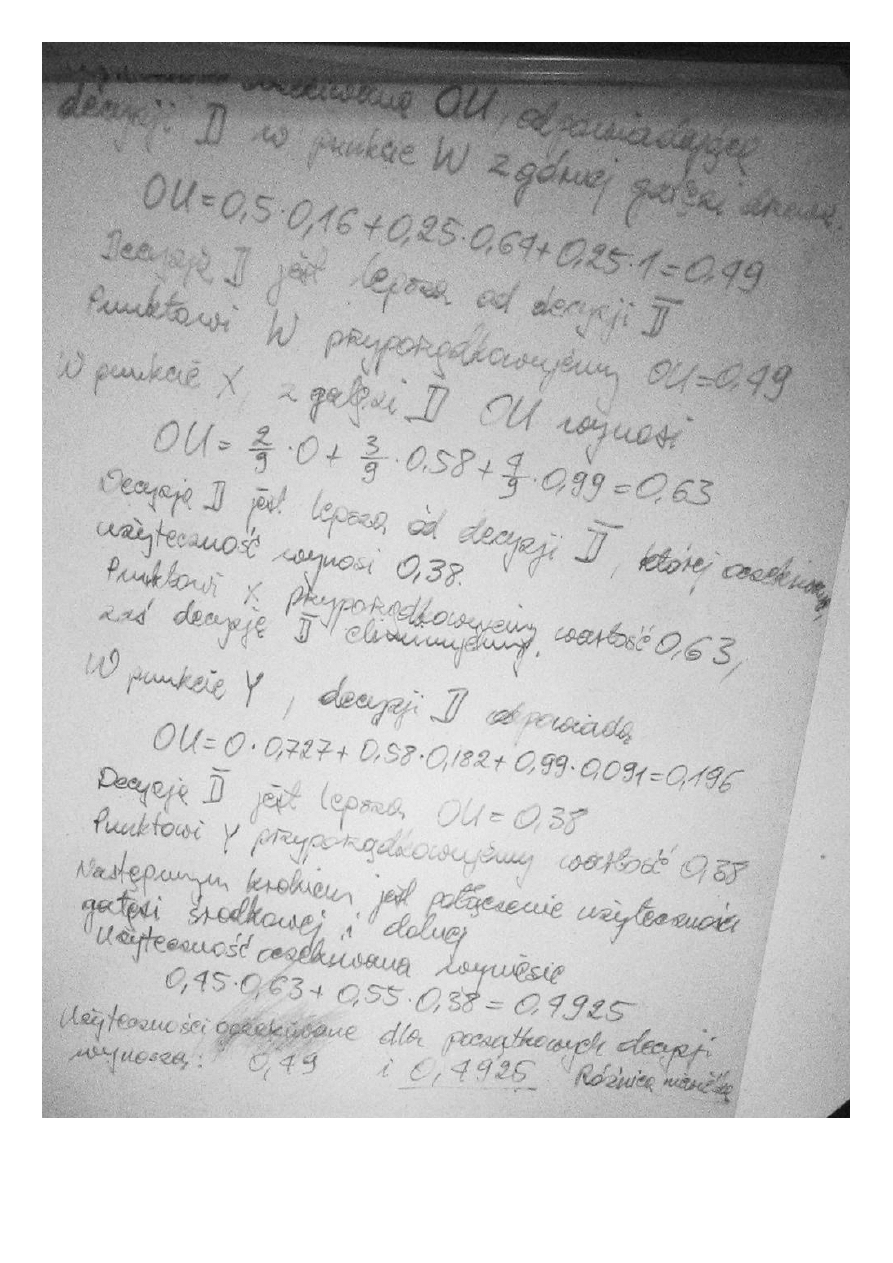 oczekiwaną OU, odpowiadającą
decyzji I w punkcie W z górnej gałęzi drzewa.
OU = 0,5 · 0,16 + 0,25 · 0,64 + 0,25 · 1 = 0,49
Decyzja I jest lepsza od decyzji II
Punktowi W przyporządkowujemy OU = 0,49
W punkcie X, z gałęzi I OU wynosi
OU = 2/9 · 0 + 3/9 · 0,58 + 4/9 · 0,99 = 0,63
Decyzja I jest lepsza od decyzji II, której oczekiwana
użyteczność wynosi 0,38.
Punktowi X przyporządkowujemy wartość 0,63,
zaś decyzję II eliminujemy.
W punkcie Y, decyzji I odpowiada
OU = 0 · 0,727 + 0,58 · 0,182 + 0,99 · 0,091 = 0,196
Decyzja II jest lepsza OU = 0,38
Punktowi Y przyporządkowujemy wartość 0,38
Następnym krokiem jest połączenie użyteczności
gałęzi środkowej i dolnej
Użyteczność oczekiwana wyniesie
0,45 · 0,63 + 0,55 · 0,38 = 0,4925
Użyteczności oczekiwane dla początkowych decyzji
wynoszą: 0,49 i 0,4925 Różnica